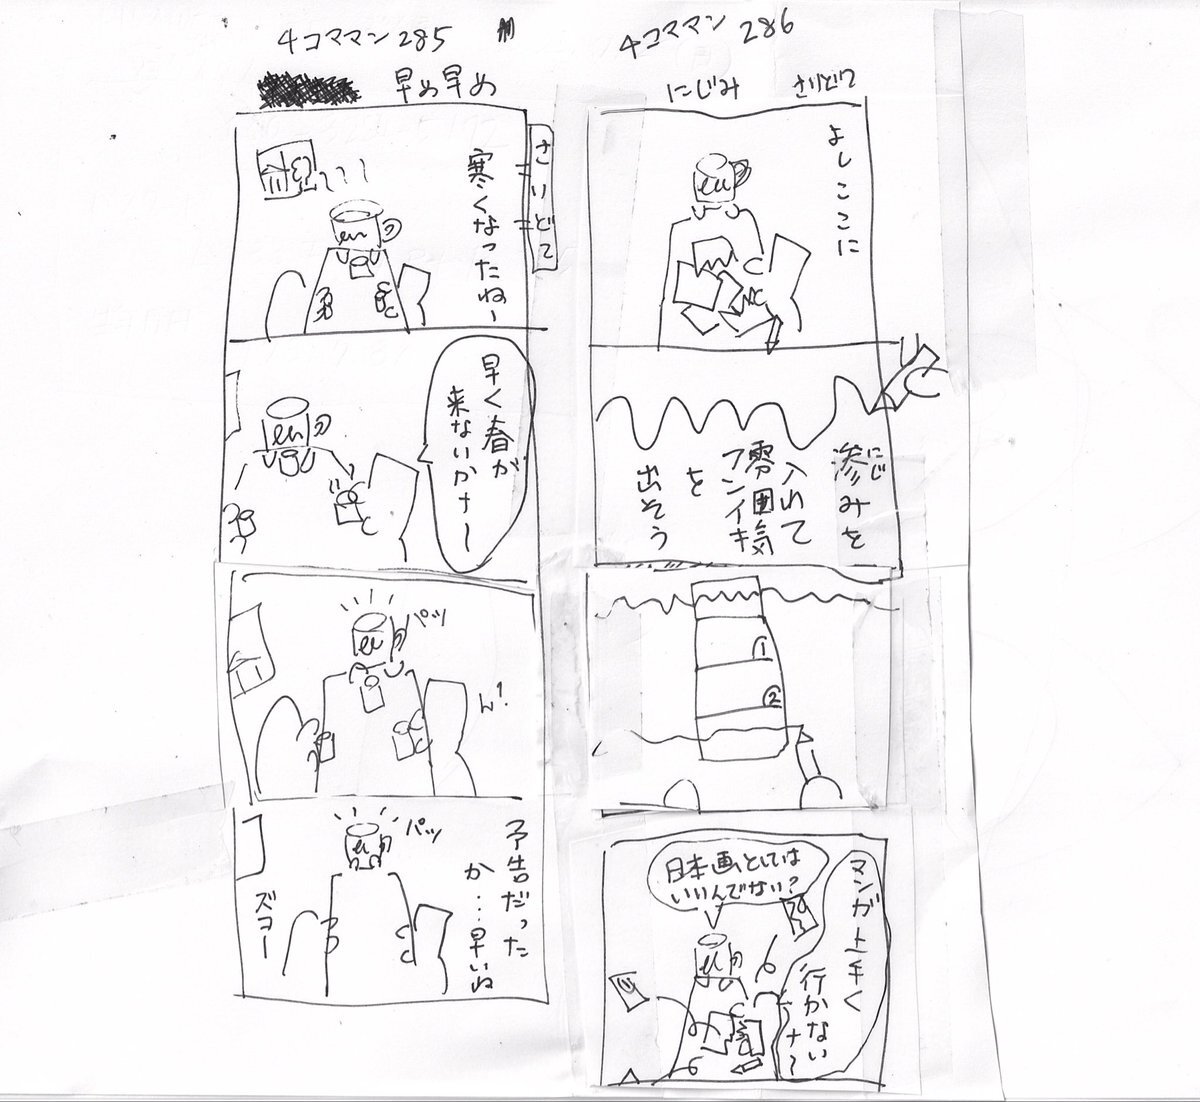 4コママン285
早め早め
さいどて
寒くなったねー
早く春が
来ないかナ〜
パッ
ん?
パッ
予告だった
か...早いね
ズコー
4コママン 286
にじみ
さいどて
よしここに
にじ
滲みを
入れて
雰囲気
フンイキ
を
出そう
①
②
マンガ上手く
行かない
ナ〜
日本画としては
いいんでない?